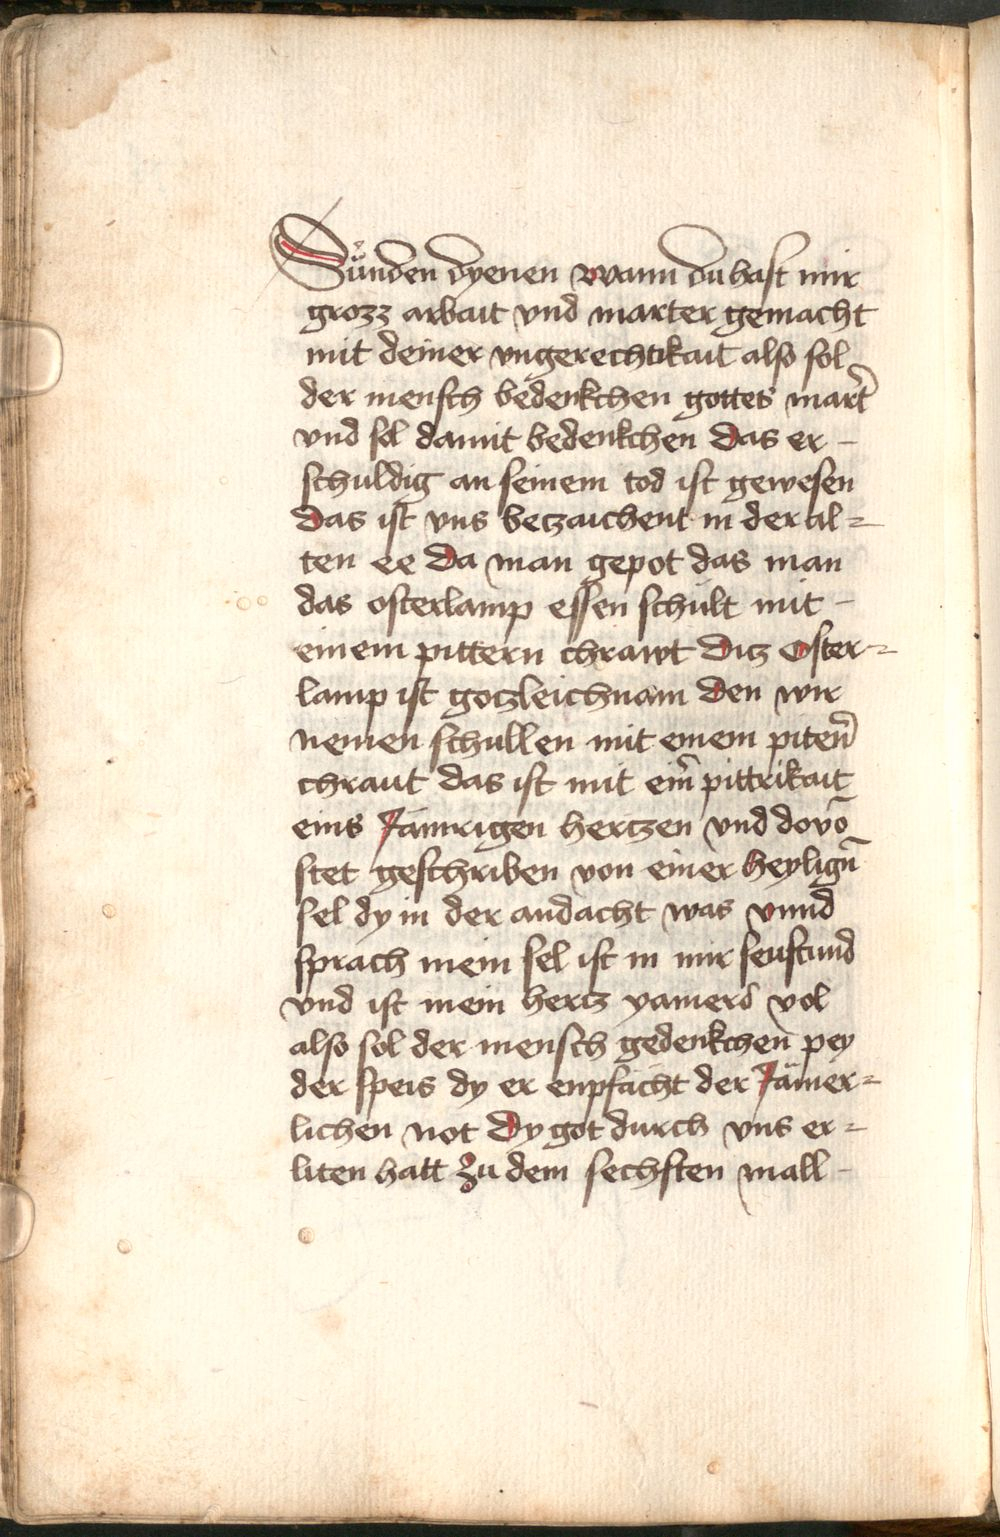 Sünden dyenen wann du hast mir
grozz arbait vnd marter gemacht
mit deiner vngerechtikait also sol
der mensch bedenkchen gottes mart̄
vnd sol damit bedenkchen das er -
schuldig an seinem tod ist gewesen
Das ist vns beczaichent in der al=
ten ee Da man gepot das man
das osterlamp essen schült mit -
einem pittern chrawt Ditz Oster=
lamp ist gotzleichnam Den wir
nemen schullen mit einem piten̄
chraut das ist mit eim̄ pittrikait
eins Jämrigen hertzen vnd dovō
stet geschriben von einer heylign̄
sel dy in der andacht was vnnd
sprach mein sel ist in mir senftund
vnd ist mein hertz yamers vol
also sol der mensch gedenkchen pey
der speis dy er enpfächt der Jämer=
lichen not Dy got durch vns er=
liten hatt Zu dem sechsten mall -